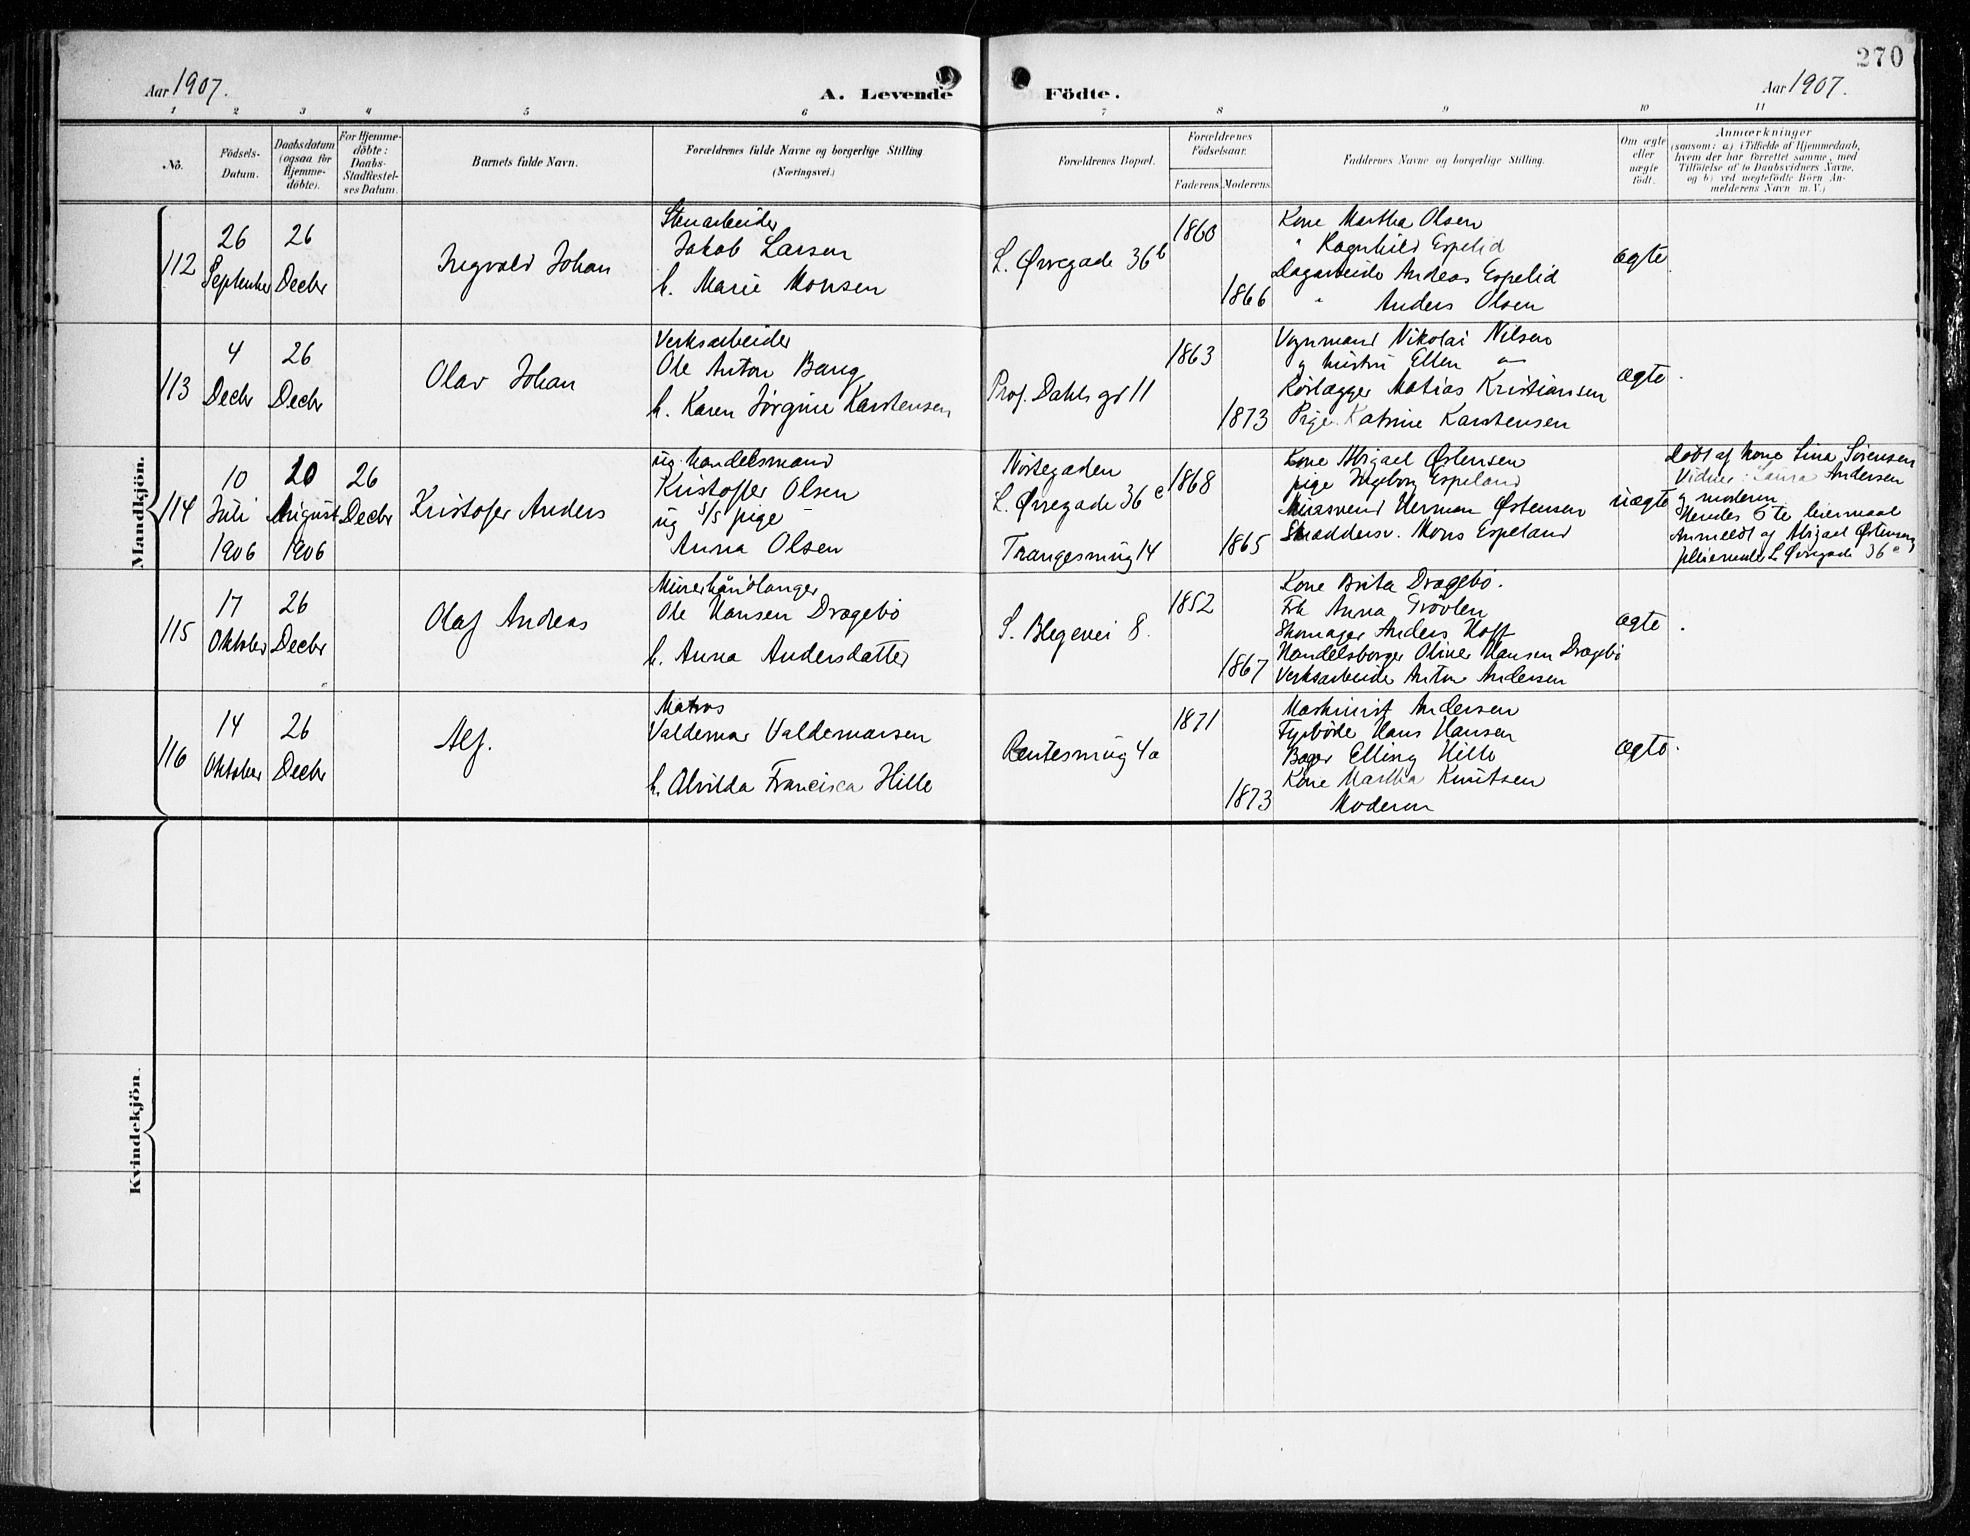 270
Aar 1907.
A. Levende Födte.
Aar 1907.
1 2 3 4 5 6 7 8 9 10 11
No.
Födsels-
Datum.
Daabsdatum
(ogsaa for
Hjemme-
döbte).
For Hjemme-
döbte:
Daabs-
Stadfæstel-
ses Datum.
Barnets fulde Navn.
Forældrenes fulde Navne og borgerlige Stilling
(Næringsvei.)
Forældrenes Bopæl.
Forældrenes
Födselsaar.
Faderens. Moderens.
Faddernes Navne og borgerlige Stilling.
Om ægte
eller
uægte
födt.
Anmærkninger
(saasom: a) i Tilfælde af Hjemmedaab,
hvem der har forrettet samme, med
Tilföielse af to Daabsvidners Navne,
og b) ved uægtefödte Börn An-
melderens Navn m. V.)
Mandkjön.
112
26
September
26
Decbr
Ingvald Johan
Stenarbeider
Jakob Larsen
h. Marie Monsen
L. Øvregade 36b
1860
1866
Kone Martha Olsen
" Ragnhild Espelid
Dagarbeide Andreas Espelid
" Anders Olsen
ægte
113
4
Decbr
26
Decbr
Olav Johan
Verksarbeider
Ole Anton Bang
h. Karen Jørgine Karstensen
Prof. Dahls gd 11
1863
1873
Vognmand Nikolai Nilsen
og hustru Ellen "
Rørlægger Matias Kristiansen
Pige Katrine Karstensen
ægte.
114
10
Juli
1906
20
August
1906
26
Decbr
Kristofer Anders
ug. handelsmand
Kristoffer Olsen
ug 5/5 pige
Anna Olsen
Nøstegaden
L. Øvregade 36c
Trangesmug 14
1868
1865
Kone Abigael Østensen
pige Ingeborg Espeland
Murasvend Herman Østensen
Skræddersv. Mons Espeland
uægte
Døbt af Kone Lina Sørensen
Vidner: Laura Andersen
og moderen
Hendes 5te leiermaal
Anmeldt af Abigael Østensen
pleiemoder L Øvregade 36c
115
17
Oktober
26
Decbr
Olaf Andreas
Murerhåndlanger
Ole Hansen Dragebø
h. Anna Andersdatter
S. Blegevei 8.
1852
1867
Kone Brita Dragebø.
Frk Anna Grøvlen
Skomager Anders Hoff
Handelsborger Oliver Hansen Dragebø
Verksarbeide Anton Andersen
ægte.
116
14
Oktober
26
Decbr
Alf.
Matros
Valdemar Valdemarsen
h. Alvilda Francisca Hille
Rentesmug 4a
1871
1873
Maskinist Andersen
Fyrbøde Hans Hansen
Bager Elling Hille
Kone Martha Knutsen
Moderen
ægte.
Kvindekjön.